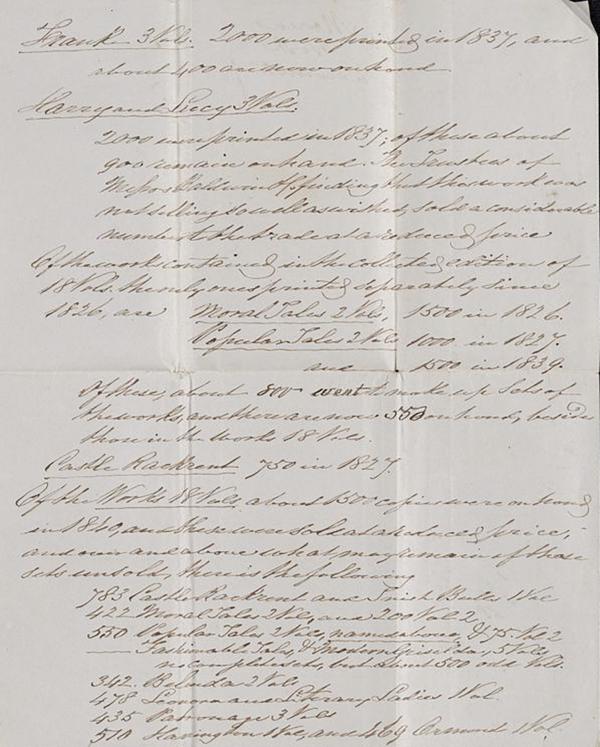 Frank 3 Vols. 2000 were printed in 1837, and
about 400 are now on hand
Harry and Lucy 3 Vols.
2000 were printed in 1837; of these about
900 remain on hand. The Trustees of
Messrs Baldwin & finding that this work was
not selling so well as wished, sold a considerable
number to the trade at a reduced price
Of the works contained in the collected edition of
18 Vols. the only ones printed separately since
1826, are Moral Tales 2 Vols, 1500 in 1826.
Popular Tales 2 Vols 1000 in 1827.
and 1500 in 1839.
Of these, about 800 went to make up Sets of
the works, and there are now 550 on hand, beside
those in the Works 18 Vols.
Castle Rackrent 750 in 1827.
Of the Works 18 Vols, about 1500 copies were on hand
in 1840, and these were sold at a reduced price;
and over and above what may remain of those
sets unsold, there is the following
783 Castle Rackrent and Irish Bulls 1 Vol
422 Moral Tales 2 Vols, and 200 Vol 2,
550 Popular Tales 2 Vols, named above, & 75 Vol 2
— Fashionable Tales, & Modern Griselda, 5 Vols
no complete sets, but about 500 odd Vols.
342. Belinda 2 Vols
478 Leonora and Literary Ladies 1 Vol.
435 Patronage 3 Vols
510 Harrington 1 Vol, and 469 Ormond 1 Vol.